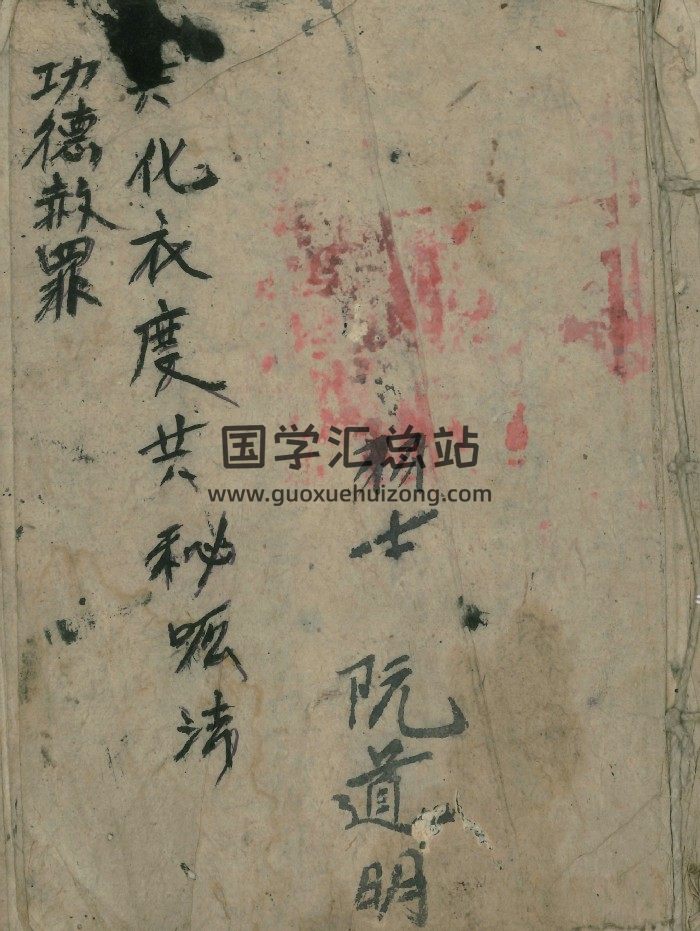 士 阮道明
共化衣度共秘呱
功德赦罪
国学汇总站
www.guoxuehuizong.com